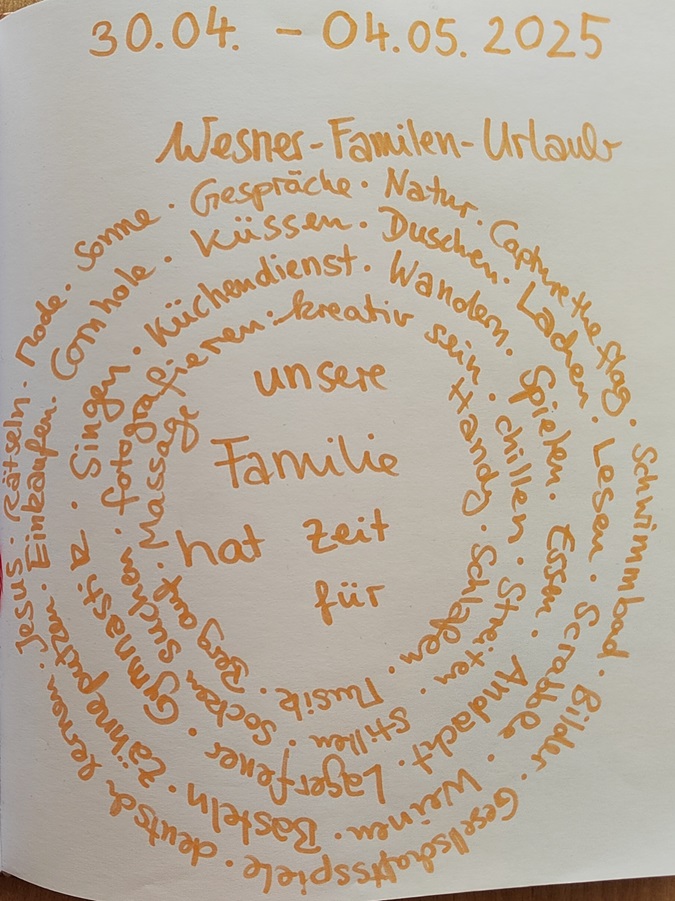 30.04. – 04.05.2025
Wesner-Familen-Urlaub
unsere
Familie
hat Zeit
für
Sonne · Gespräche · Natur · Capture the flag · Schwimmbad · Bilder · Gesellschaftsspiele · deutsch lernen · Jesus · Rätseln · Mode ·
Cornhole · Küssen · Duschen · Lachen · Lesen · Scrabble · Weinen · Basteln · Zähneputzen · Einkaufen ·
Singen · Küchendienst · Wandern · Spielen · Essen · Andacht · Lagerfeuer · Gymnastik ·
fotografieren · kreativ sein · chillen · Streiten · stillen · Socken suchen ·
Handy · Schlafen · Musik · Berg auf · Massage